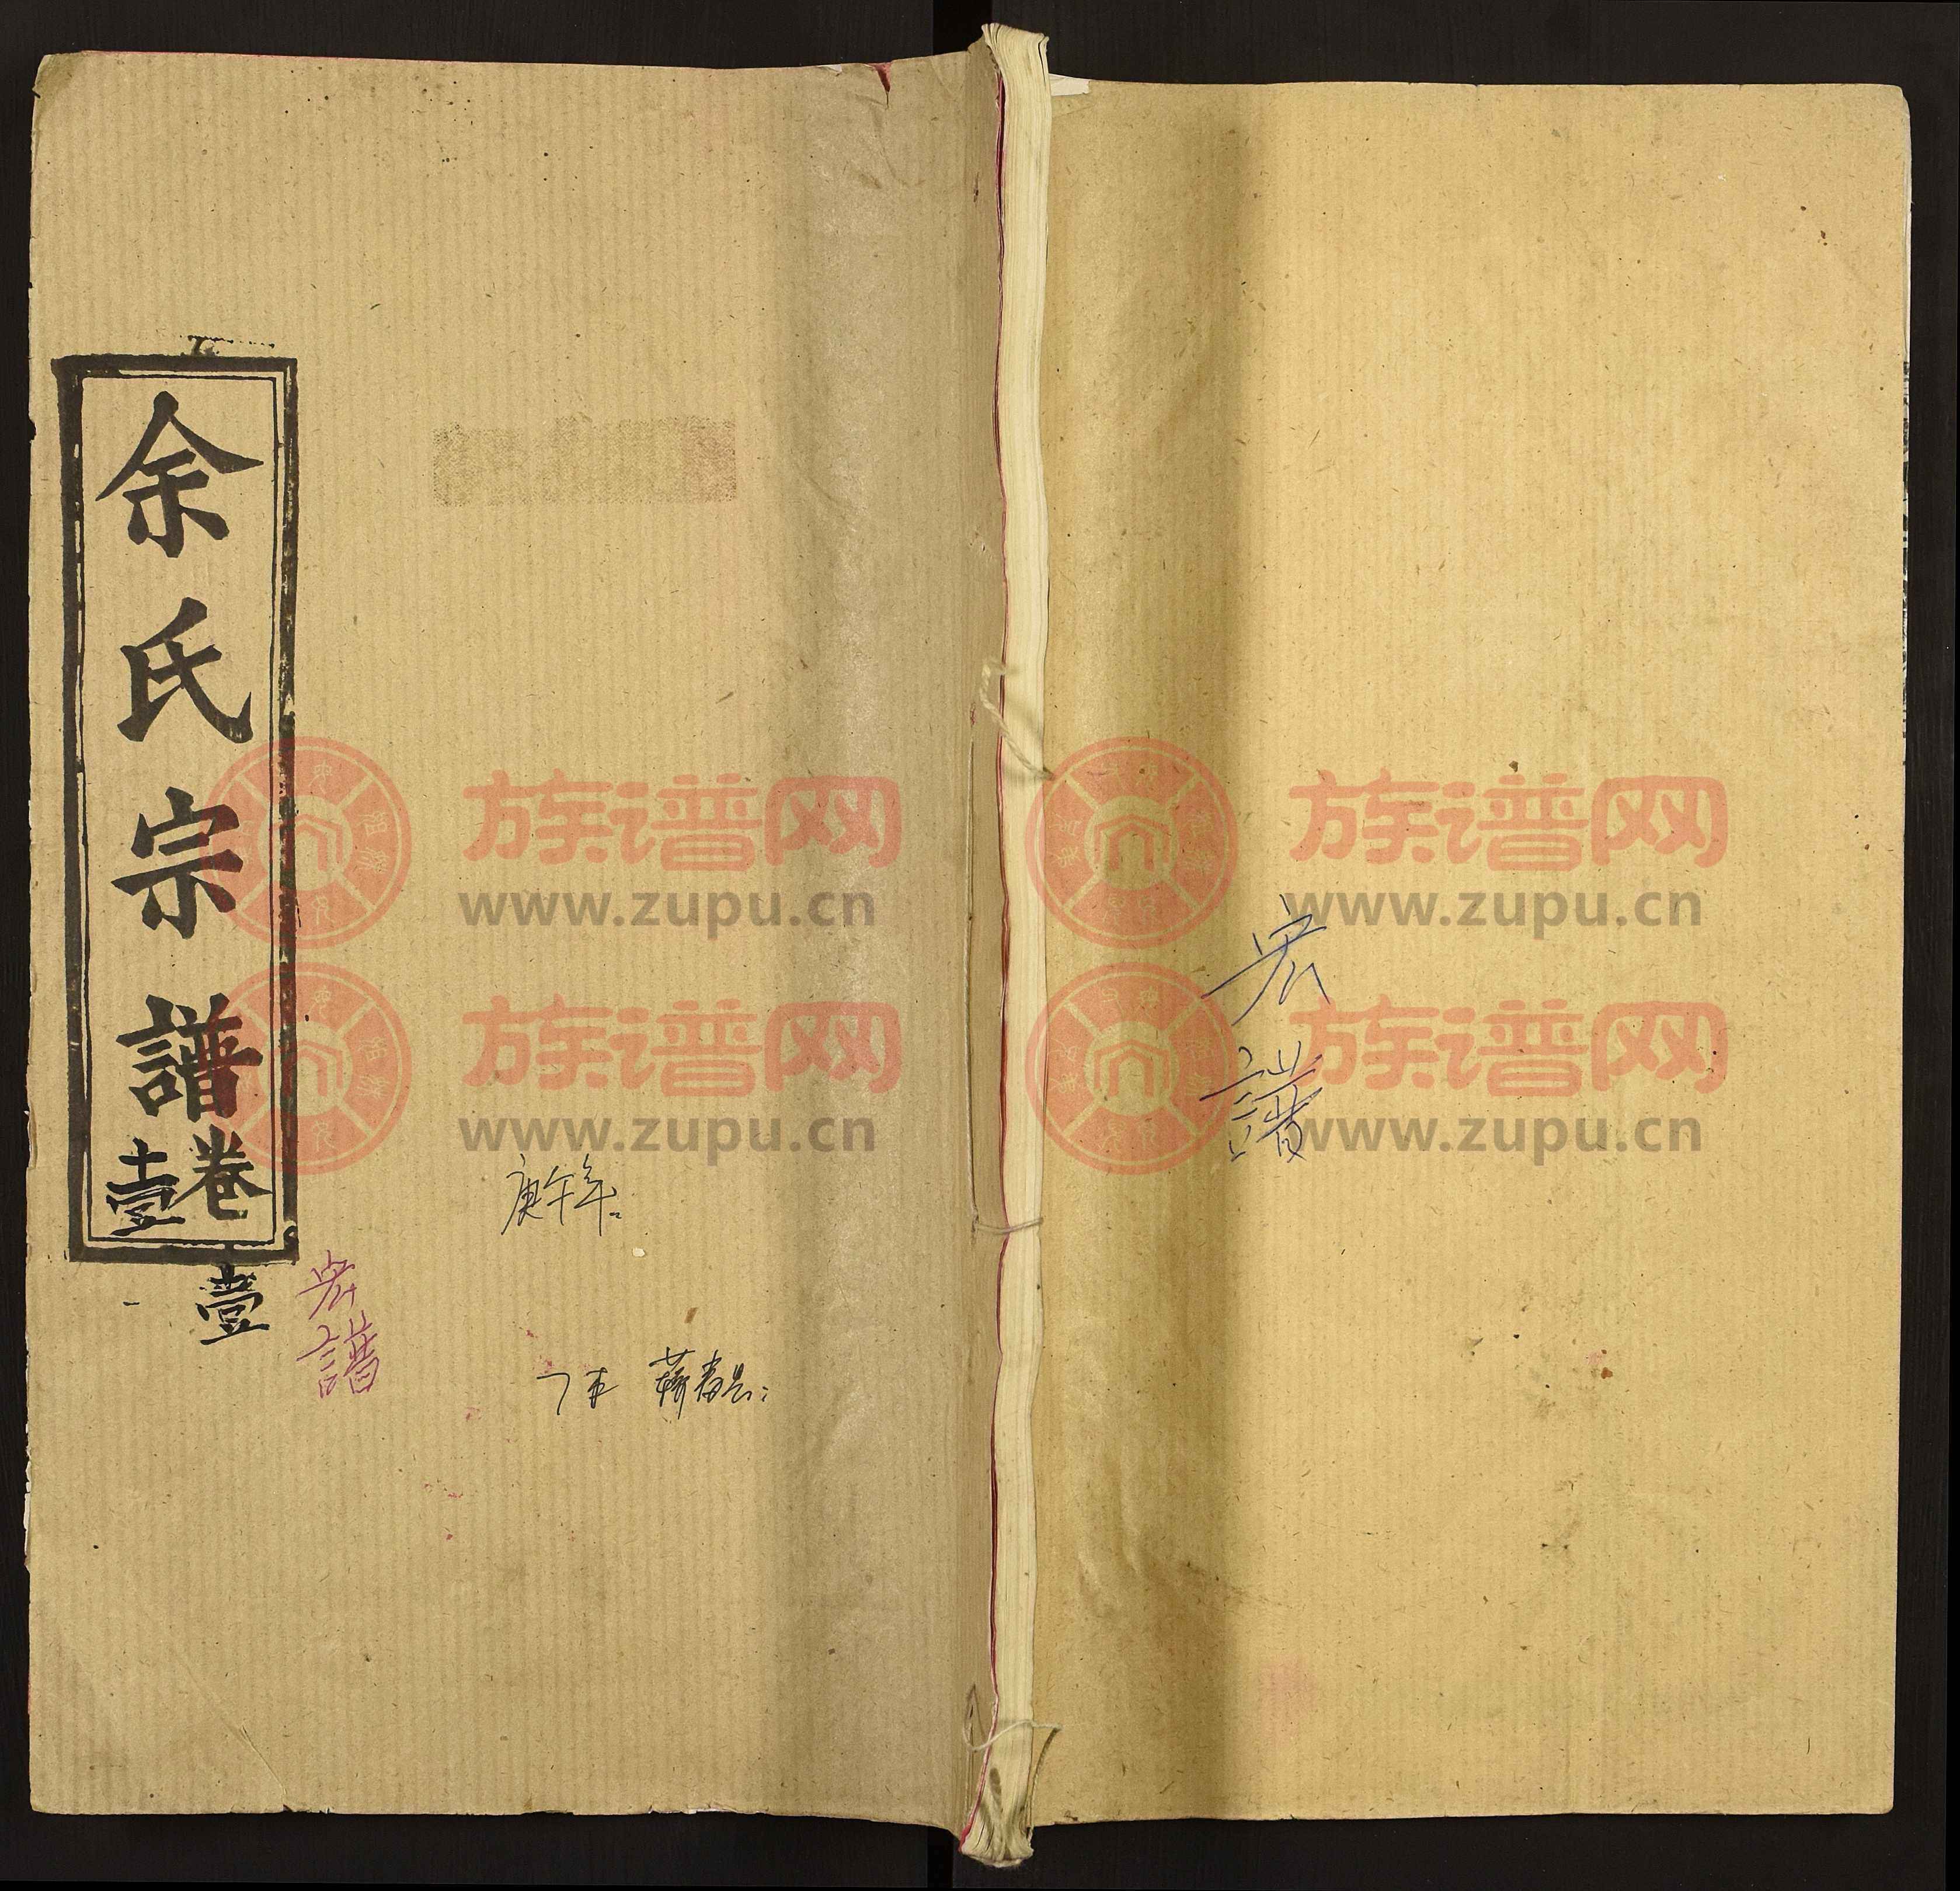 余氏宗譜
卷
壹
壹
宏譜
庚午年
本 蕲春县:
宏
譜
族谱网
www.zupu.cn
族谱网
www.zupu.cn
族谱网
www.zupu.cn
族谱网
www.zupu.cn